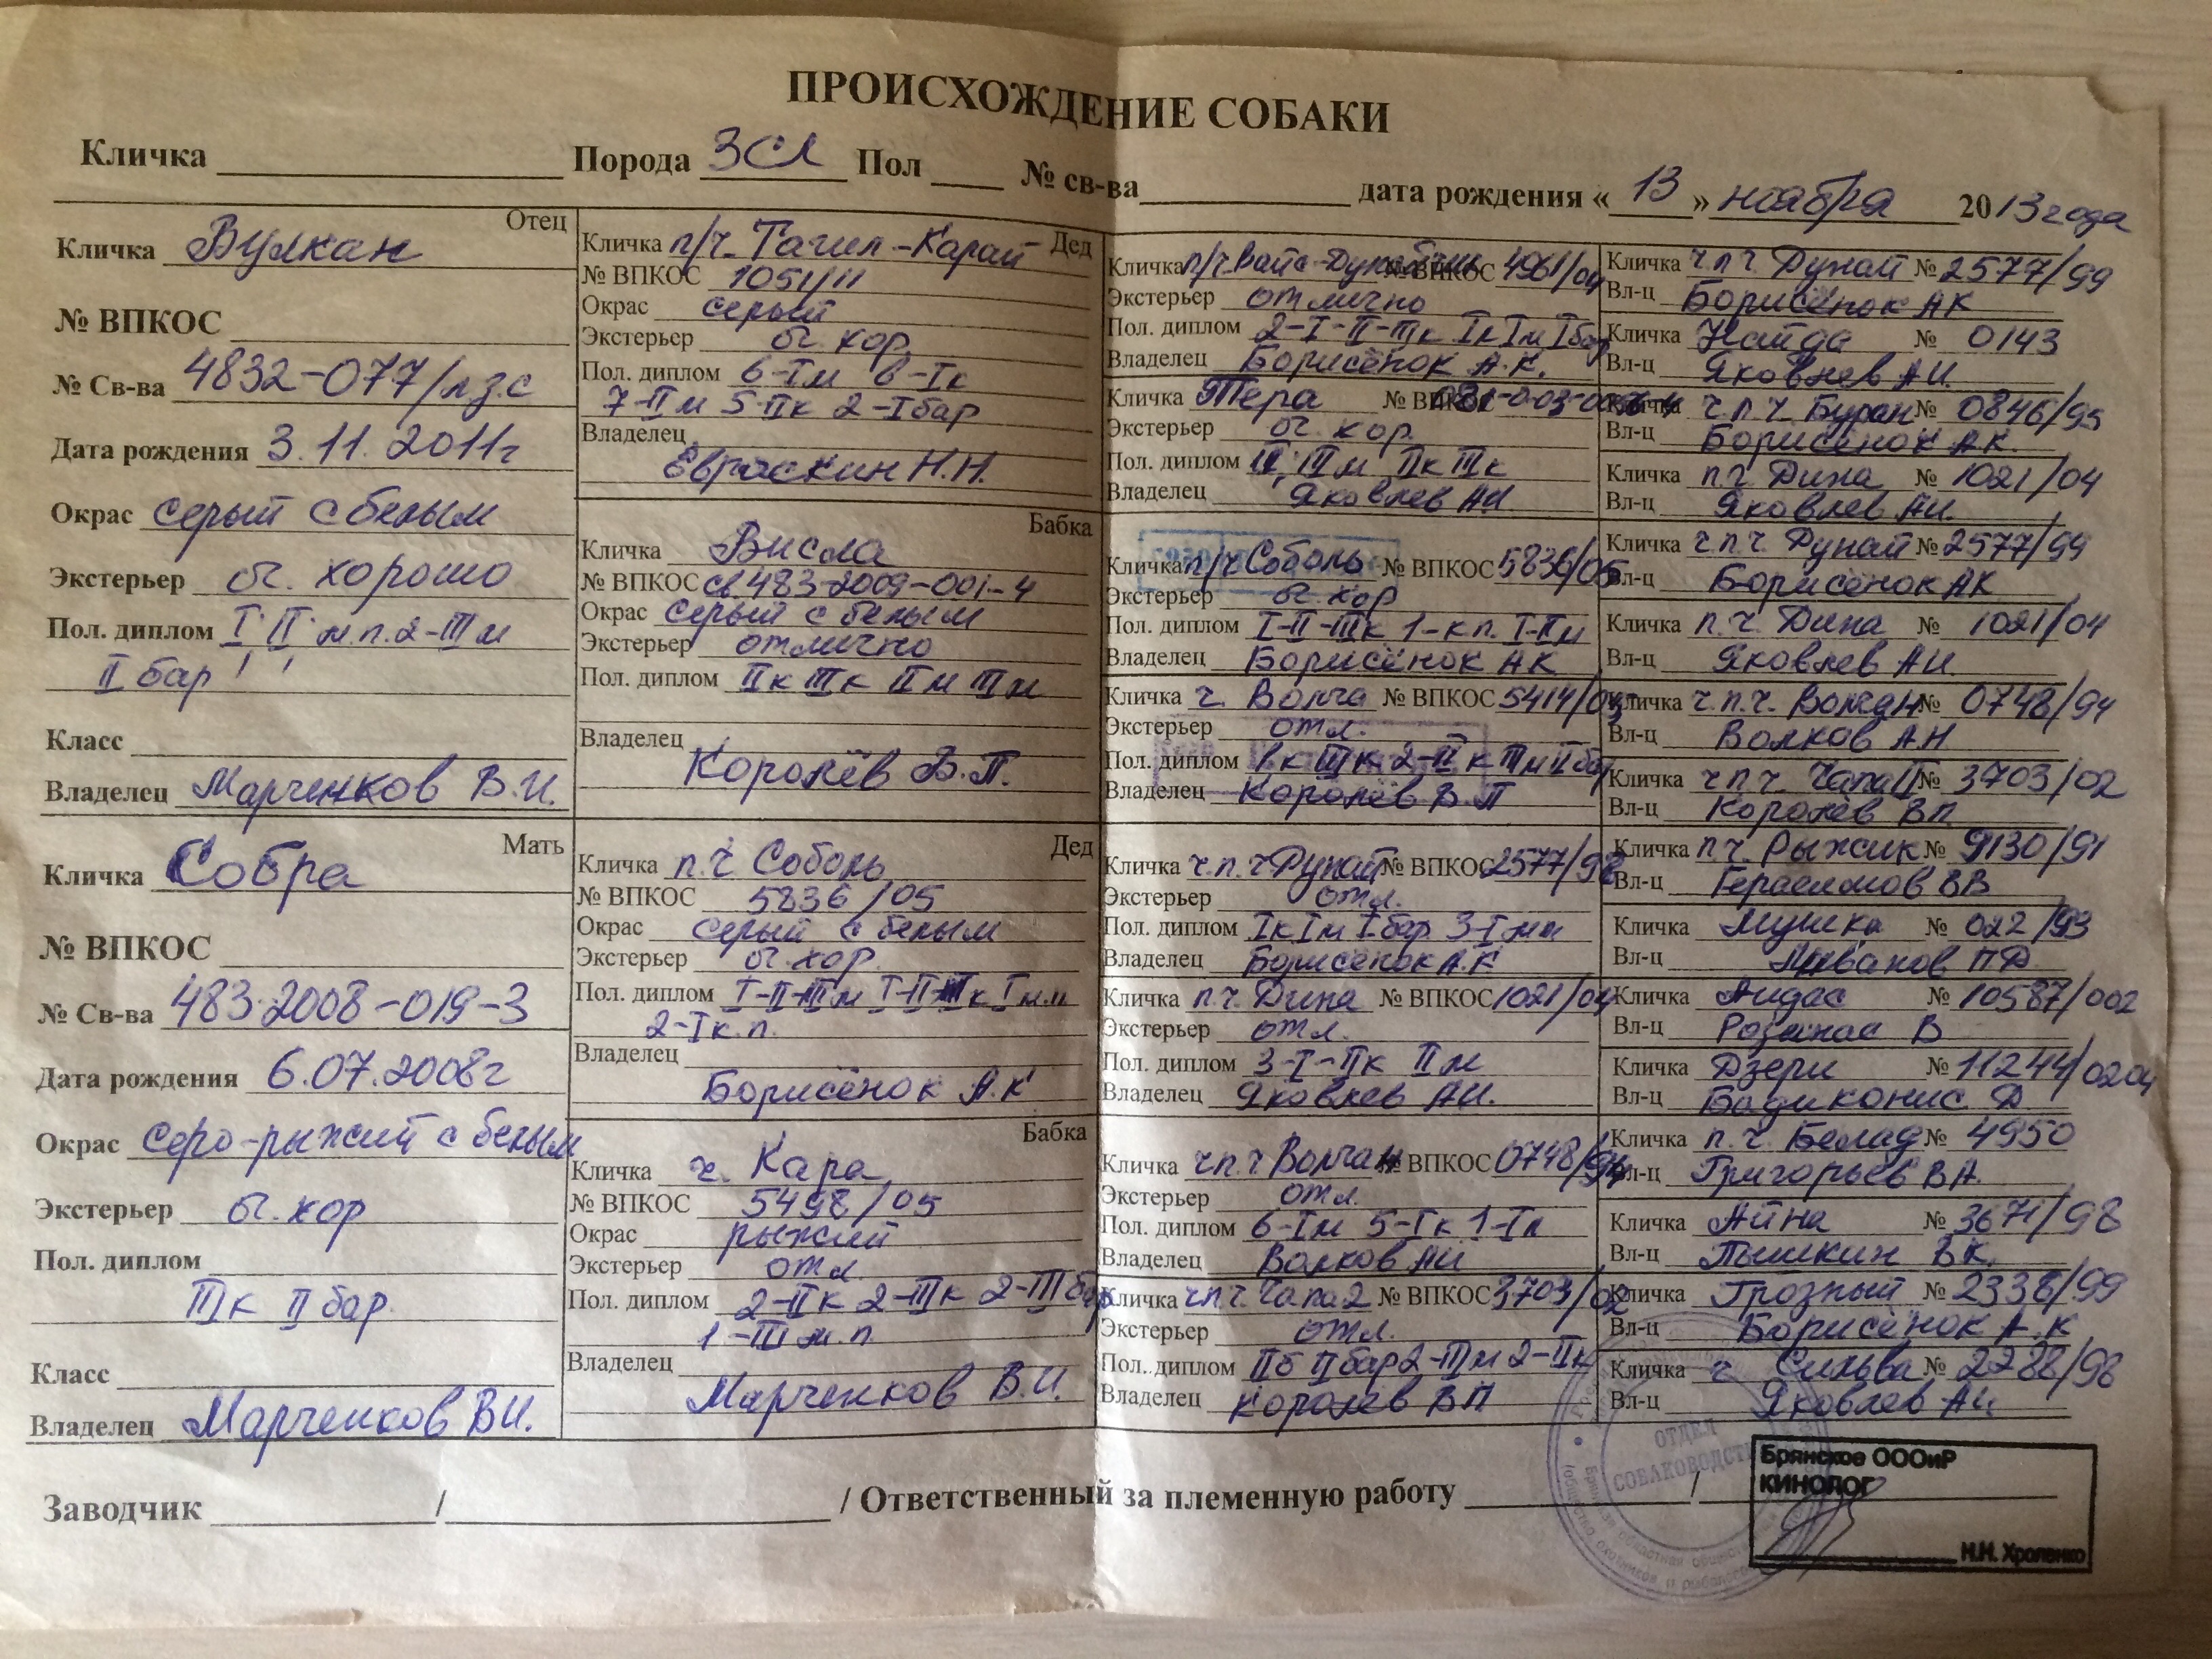 ПРОИСХОЖДЕНИЕ СОБАКИ
Кличка Порода ЗСЛ Пол № св-ва дата рождения «13» ноября 2013 года
Отец
Кличка Вулкан
№ ВПКОС
№ Св-ва 4832-077/лз.с
Дата рождения 3.11.2011г
Окрас серый с белым
Экстерьер оч. хорошо
Пол. диплом I II м.п. 2-III м
II бар
Класс
Владелец Марченков В.И.
Мать
Кличка Собра
№ ВПКОС
№ Св-ва 483-2008-019-3
Дата рождения 6.07.2008г
Окрас серо-рыжий с белым
Экстерьер оч. хор
Пол. диплом
III к II бар.
Класс
Владелец Марченков В.И.
Дед
Кличка п/ч Тагил-Карай
№ ВПКОС 1051/11
Окрас серый
Экстерьер оч. хор.
Пол. диплом 6-I м 6-I к
7-II м 5-II к 2-I бар
Владелец
Евраскин Н.Н.
Бабка
Кличка Висла
№ ВПКОС св.483-2009-001-4
Окрас серый с белым
Экстерьер отлично
Пол. диплом II к III к II м III м
Владелец
Королёв В.П.
Дед
Кличка п.ч Соболь
№ ВПКОС 5836/05
Окрас серый с белым
Экстерьер оч. хор.
Пол. диплом I-II-III м I-II-III к I м м
2-I к.п.
Владелец
Борисёнок А.К
Бабка
Кличка ч. Кара
№ ВПКОС 5498/05
Окрас рыжий
Экстерьер отл
Пол. диплом 2-II к 2-III к 2-III бар
1-III м.п.
Владелец
Марченков В.И.
Кличка п/ч Вайс-Дунай № ВПКОС 4961/04
Экстерьер отлично
Пол. диплом 2-I-II-III к I к I м I бар
Владелец Борисёнок А.К.
Кличка Тера № ВПКОС
Экстерьер оч. хор.
Пол. диплом III м II к III к
Владелец Яковлев АИ
Кличка п/ч Соболь № ВПКОС 5836/05
Экстерьер оч. хор
Пол. диплом I-II-III к 1-к п. I-II м
Владелец Борисёнок АК
Кличка ч. Волга № ВПКОС 5414/05
Экстерьер отл.
Пол. диплом III к 2-II к III м II бар
Владелец Королёв В П
Кличка ч.п.ч Дунай № ВПКОС 2577/98
Экстерьер отл.
Пол. диплом I к I м I бар 3-I мп
Владелец Борисёнок А.К
Кличка п.ч. Дина № ВПКОС 1021/04
Экстерьер отл.
Пол. диплом 3-I-II к II м
Владелец Яковлев АИ.
Кличка ч.п.ч Волчан № ВПКОС 0748/94
Экстерьер отл.
Пол. диплом 6-I м 5-I к 1-I п
Владелец Волков АИ
Кличка ч.п.ч. Чапа 2 № ВПКОС 3703/02
Экстерьер отл.
Пол. диплом II б II бар 2-III м 2-II к
Владелец Королев ВП
Кличка ч.п.ч. Дунай № 2577/99
Вл-ц Борисёнок АК
Кличка Найда № 0143
Вл-ц Яковлев А.И.
Кличка ч.п.ч. Буран № 0846/95
Вл-ц Борисёнок АК.
Кличка п.ч Дина № 1021/04
Вл-ц Яковлев АИ.
Кличка ч.п.ч. Дунай № 2577/99
Вл-ц Борисёнок АК
Кличка п.ч. Дина № 1021/04
Вл-ц Яковлев АИ.
Кличка ч.п.ч. Волчан № 0748/94
Вл-ц Волков А.Н
Кличка ч.п.ч. Чапа II № 3703/02
Вл-ц Королёв ВП.
Кличка п.ч. Рыжик № 9130/91
Вл-ц ВВ
Кличка Мушка № 022/93
Вл-ц ПД
Кличка Аидас № 10587/002
Вл-ц Розинас В
Кличка Дзери № 11244/0204
Вл-ц Бадиконис Д
Кличка п.ч. Белад № 4950
Вл-ц Григорьев ВА.
Кличка Айна № 3671/98
Вл-ц Пышкин ВК.
Кличка Грозный № 2338/99
Вл-ц Борисёнок А.К
Кличка ч Сильва № 2288/98
Вл-ц Яковлев АИ.
Заводчик / / Ответственный за племенную работу /
ОТДЕЛ
СОБАКОВОДСТВА
Брянское ОООиР
КИНОЛОГ
Н.Н. Хроленко